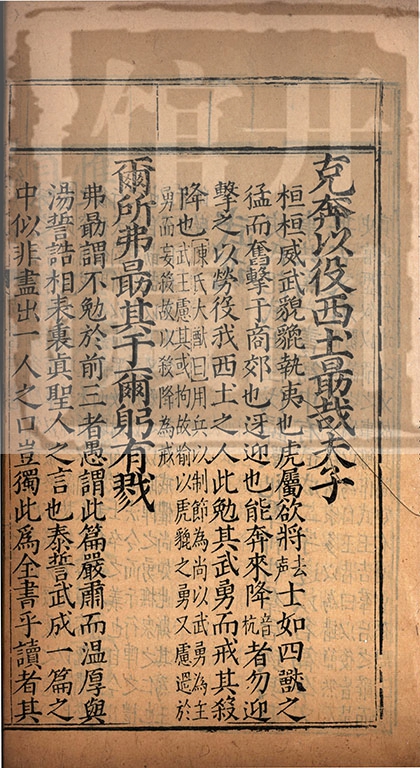 克奔以役西土勗哉夫子
桓桓威武貌貔執夷也虎屬欲將去聲士如四獸之
猛而奮擊于商郊也迓迎也能奔來降音杭者勿迎
擊之以勞役我西土之人此勉其武勇而戒其殺
降也陳氏大猷曰用兵以制節為尚以武勇為主
武王慮其或拘故喻以虎貔之勇又慮過於
勇而妄殺故以殺降為戒
爾所弗勗其于爾躬有戮
弗勗謂不勉於前三者愚謂此篇嚴肅而温厚與
湯誓誥相表裏眞聖人之言也泰誓武成一篇之
中似非盡出一人之口豈獨此爲全書乎讀者其